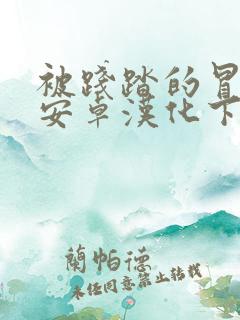 被踐踏的冒
安卓漢化下
蘭帕德
未经同意禁止转载